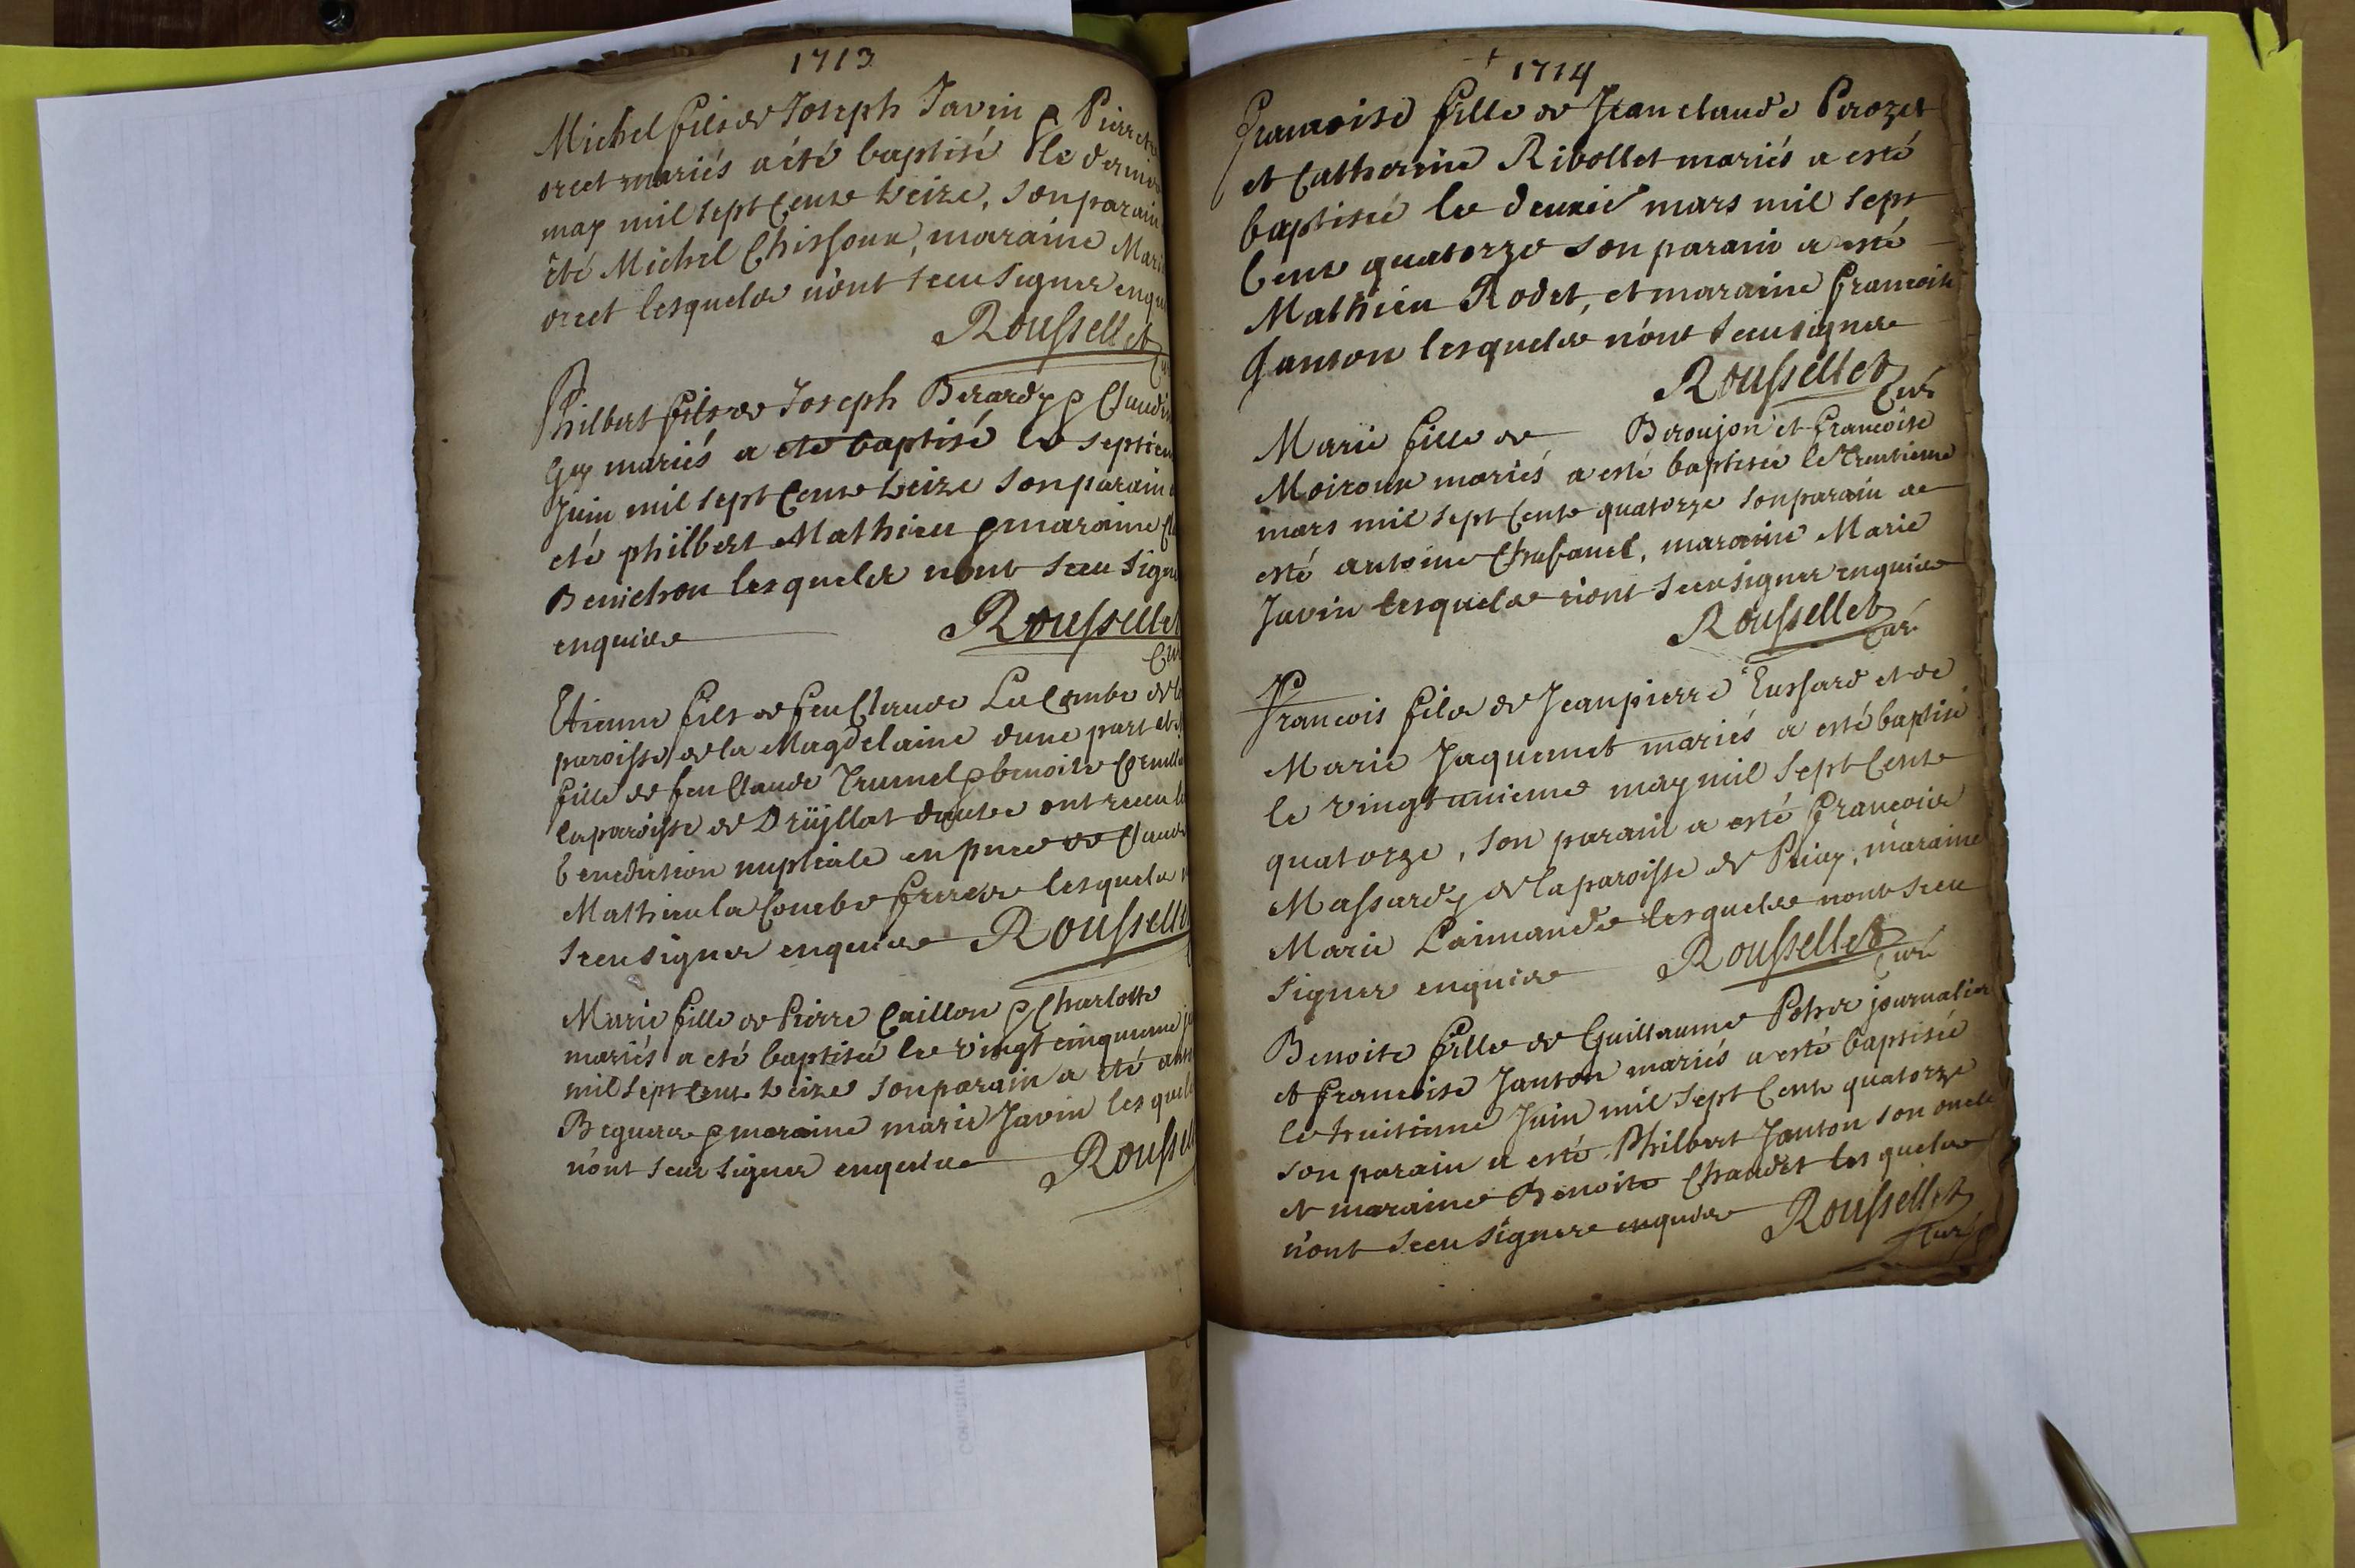 1713
Michel fils de Joseph Javin & Pierrete
mariés a été baptisé le dernier
may mil sept cents treize, son parain
été Michel Chissoux, maraine Marie
lesquels n'ont sceu signer enquis
Roussellet
Philbert fils de Joseph Berardy & Claudine
Guy mariés a eté baptisé le septiem
Juin mil sept cents treize son parain a
eté philbert Mathieu & maraine
Benichon lesquels nont sceu signer
enquis
Roussellet
Curé
Etienne fils de feu Claude La Combe de la
paroisse de la Magdelaine dune part et
fille de feu Claude Trumel & benoite
la paroisse de Drüillat dautre ont receu la
benediction nuptiale en pnce de Claude
Mathieu la Combe freres lesquels
sceu signer enquis Roussellet
Marie fille de Pierre Caillon & Charlotte
mariés a eté baptisée le vingt cinquieme
mil sept cents treize son parain a eté
Beguere & maraine marie Javin lesquels
n'ont sceu signer enquis Roussellet
1714
Francoise fille de Jean claude Perozet
et Catherine Ribollet mariés a esté
baptisée le deuxie mars mil sept
Cents quatorze son parain a esté
Mathieu Rodet, et maraine Francoise
Janton lesquels n'ont sceu signer
Roussellet
Curé
Marie fille de Beroujon et Francoise
Moiroux mariés a esté baptisée le trentieme
mars mil sept Cents quatorze son parain a
esté antoine Chabanel, maraine Marie
Javin lesquels n'ont sceu signer enquis
Roussellet
Curé
Francois fils de Jean pierre Tussard et de
Marie Jaquemet mariés a esté baptisé
le vingt unieme may mil sept Cents
quatorze, son parain a esté Francois
Massardy de la paroisse de Priay, maraine
Marie Laimande lesquels nont sceu
signer enquis Roussellet
Curé
Benoite fille de Guillaume Pochet journalier
et Francoise Janton mariés a esté baptisée
le huitieme Juin mil sept Cents quatorze
son parain a esté Philbert Janton son oncle
et maraine Benoite Chaudet lesquels
n'ont sceu signer enquis Roussellet
Curé